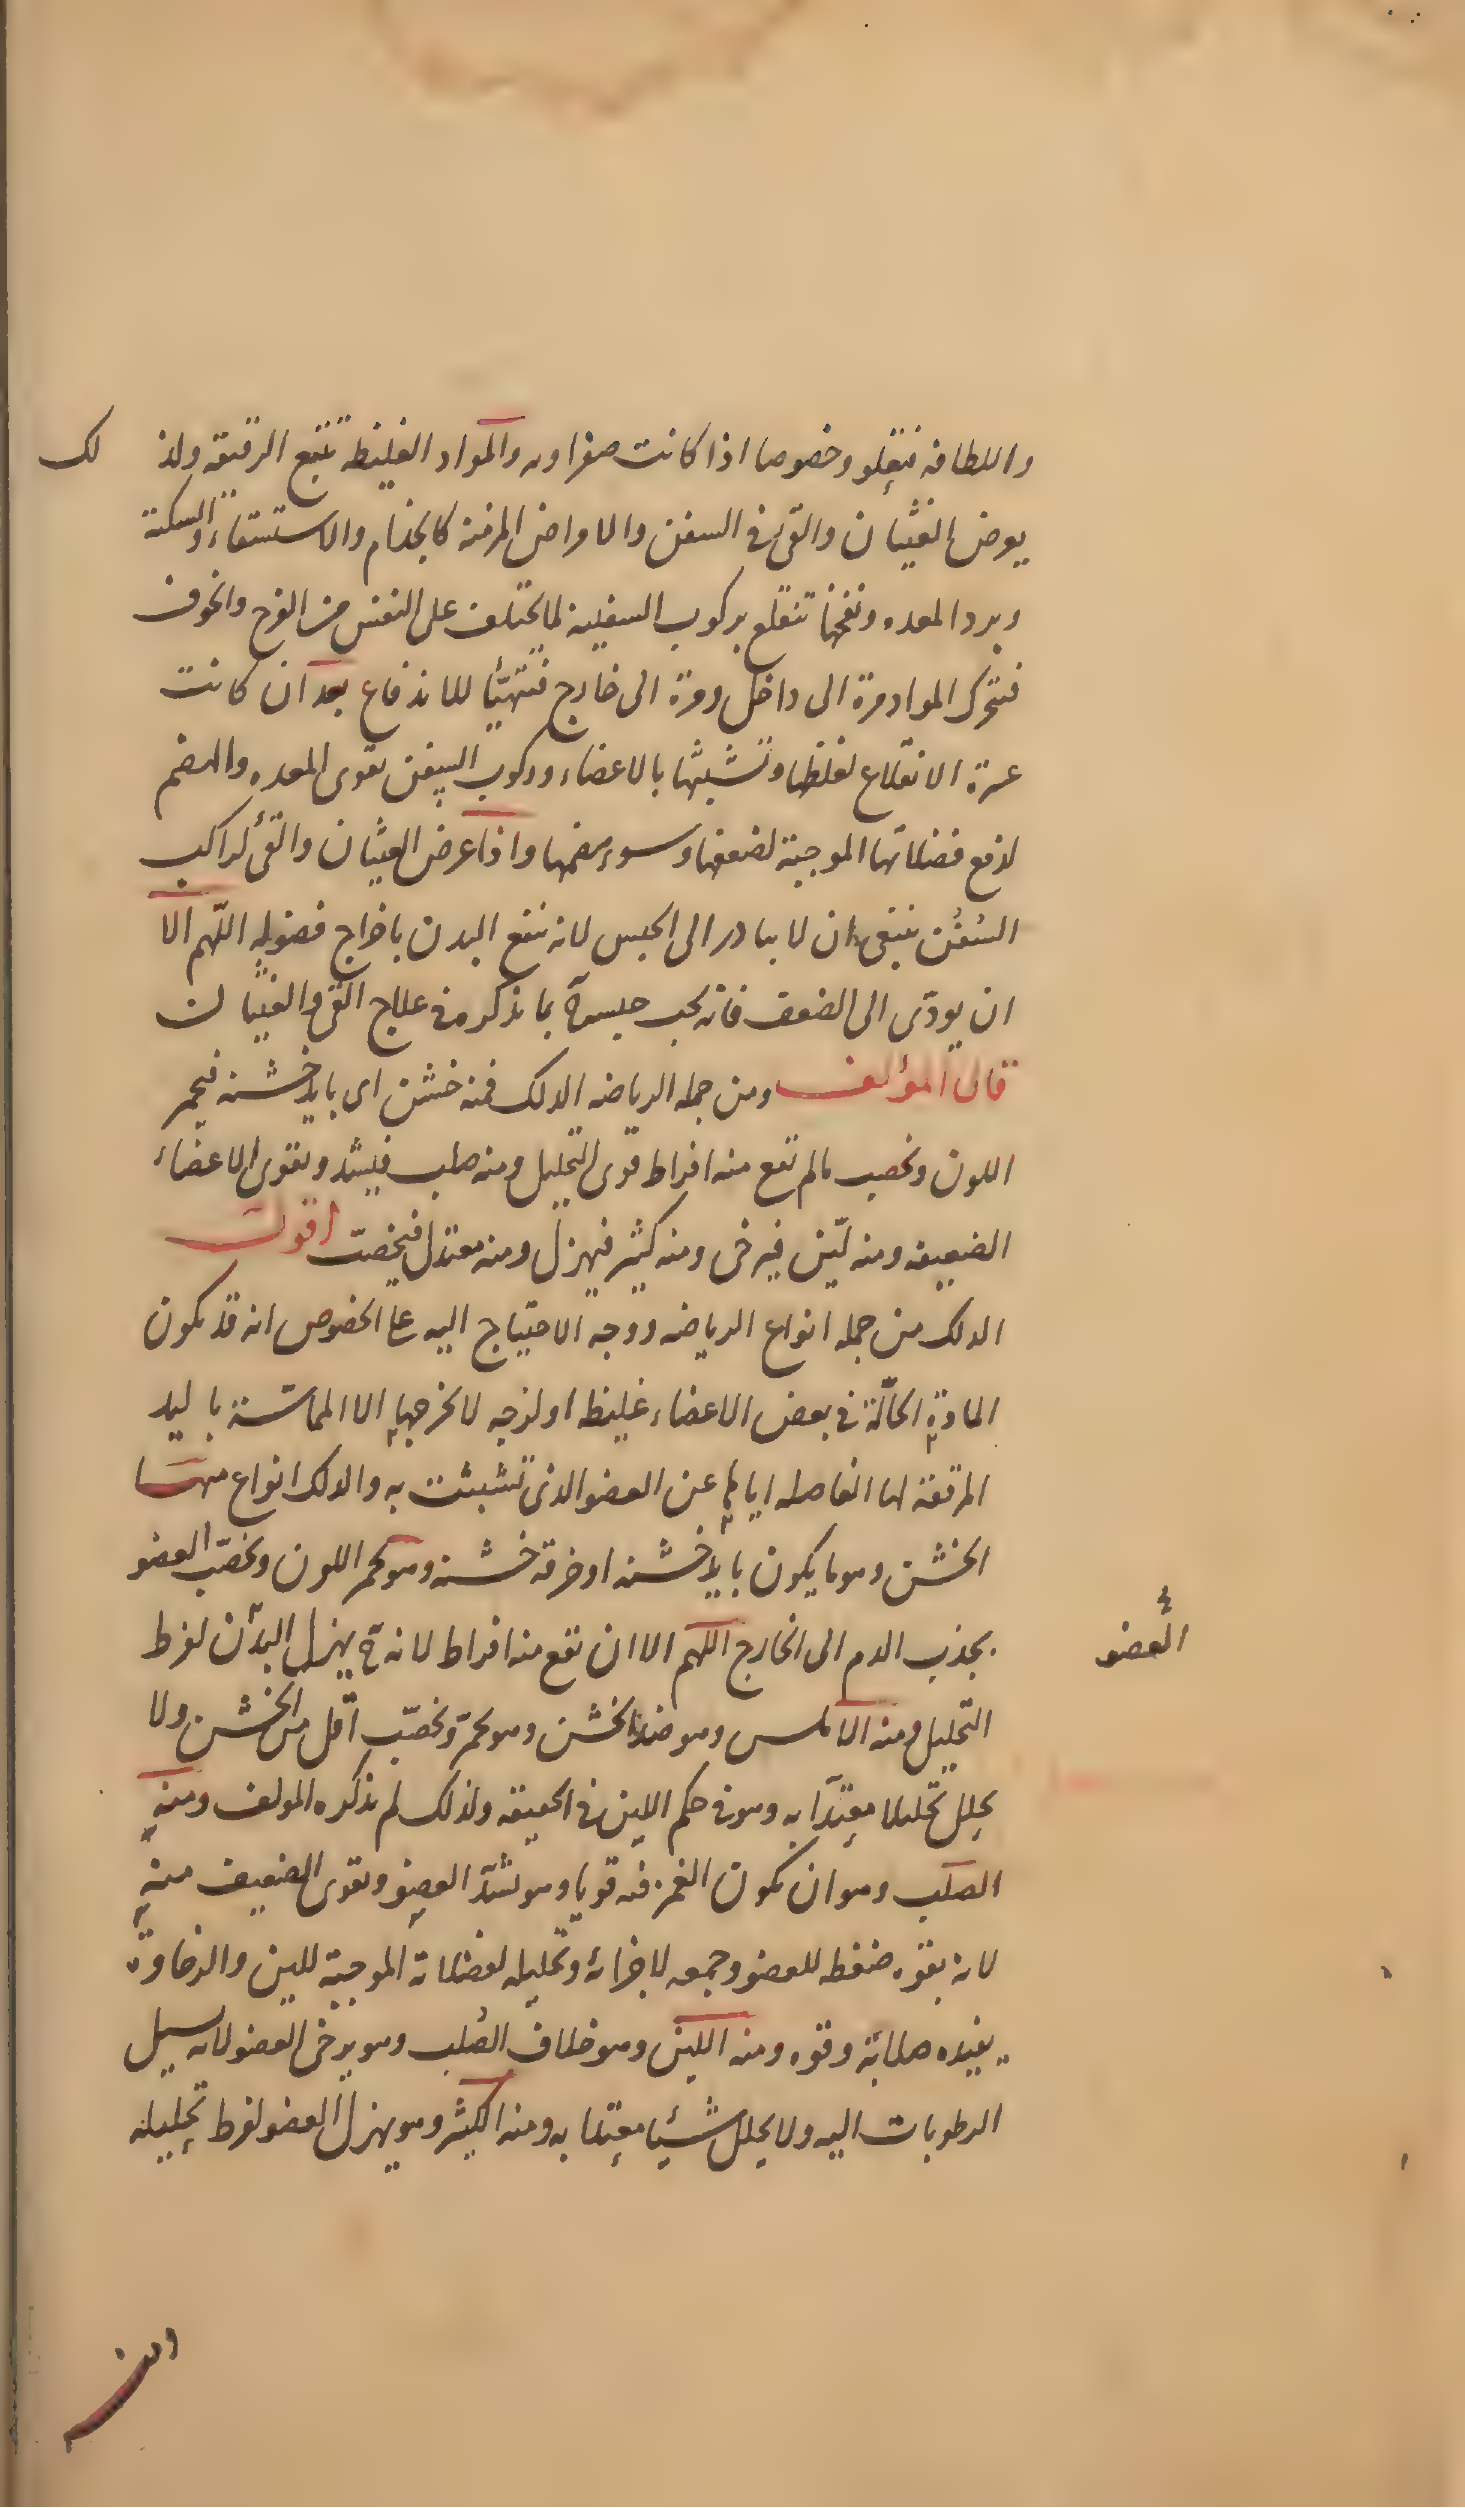 واللطافه فتعلو وخصوصا اذا كانت صفراويه والمواد الغليظه تتبع الرقيقه ولذ لك
يعرض الغثيان والقئ فى السفن والامراض المزمنة كالجذام والاستسقاء والسكتة
وبرد المعده ونفخها تنقلع بركوب السفينه لما يختلف على النفس من الفرح والخوف
فتتحرك المواد مرة الى داخل ومرة الى خارج فتتهيأ للاندفاع بعد ان كانت
عسرة الانقلاع لغلظها وتشبثها بالاعضاء وركوب السفن يقوى المعده والهضم
لدفع فضلاتها الموجبة لضعفها وسوء هضمها واذا عرض الغثيان والقئ لراكب
السفن ينبغى ان لا يبادر الى الحبس لانه ينفع البدن باخراج فضوله اللهم الا
ان يودى الى الضعف فانه يجب حبسه بما يذكر فى علاج القئ والغثيان
قال المؤلف ومن جمله الرياضه الدلك فمنه خشن اى بايد خشنه فيحمر
اللون ويخصب مالم يقع منه افراط قوى التحليل ومنه صلب فيشد ويقوى الاعضاء
الضعيفه ومنه لين فيرخى ومنه كثير فيهزل ومنه معتدل فيخصب اقول
الدلك من جمله انواع الرياضه ووجه الاحتياج اليه على الخصوص انه قد يكون
المادة الحالّة فى بعض الاعضاء غليظه او لزجه لا يخرجها الا المماسّة باليد
المرققة لها الفاصله اياها عن العضو الذى تشبثت به والدلك انواع منها
الخشن وهو ما يكون بايد خشنه او خرقه خشنه وهو يحمر اللون ويخصّب العضو
بجذب الدم الى الخارج اللهم الا ان يقع منه افراط لانه ح يهزل البدن لفرط
العضو
التحليل ومنه الاملس وهو ضد الخشن وهو يحمر ويخصّب اقل من الخشن ولا
يحلل تحليلا معتدّا به وهو فى حكم اللين فى الحقيقه ولذلك لم يذكره المولف ومنه
الصلب وهو ان يكون الغمز فيه قويا وهو يشدّ العضو ويقوى الضعيف منه
لانه بقوه ضغطه للعضو وجمعه لاجزائه وتحليله لفضلاته الموجبة للين والرخاوة
يفيده صلابة وقوه ومنه اللين وهو خلاف الصلب وهو يرخى العضو لانه يسيل
الرطوبات اليه ولا يحلل شيئا معتدا به ومنه الكثير وهو يهزل العضو لفرط تحليله